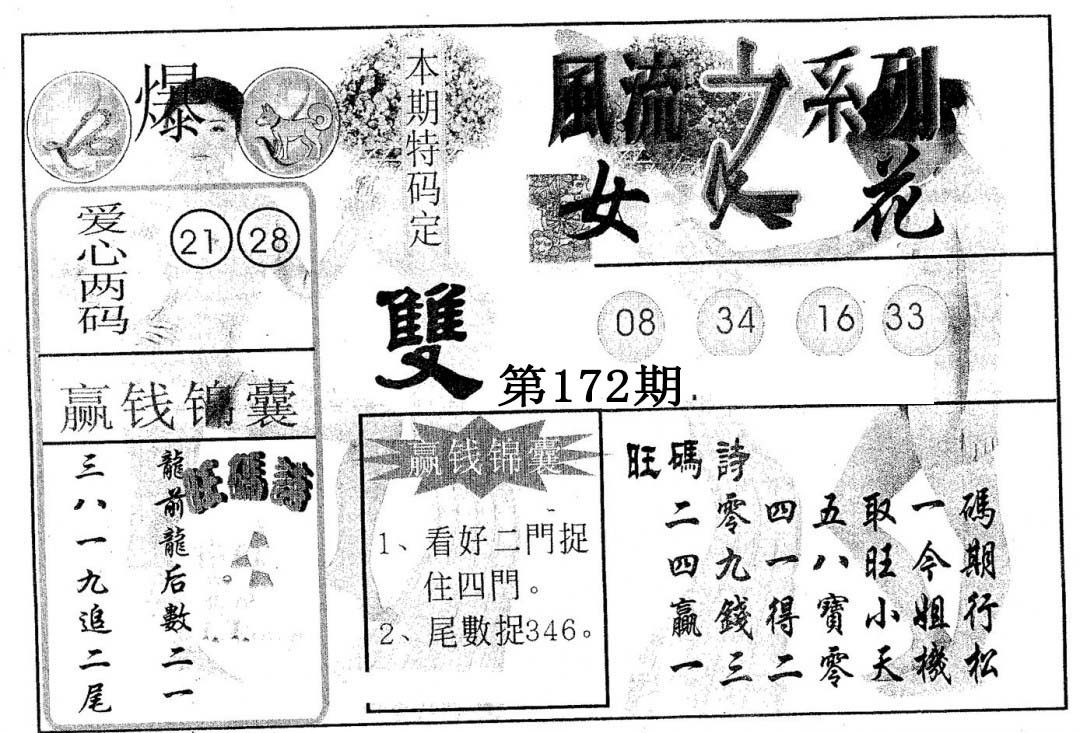 爆
本期特码定
雙
風流之系列
女人花
爱心两码
21 28
08 34 16 33
第172期
赢钱锦囊
旺碼詩
龍前龍后數二一
三八一九追二尾
赢钱锦囊
1、看好二門捉
住四門。
2、尾數捉346。
旺碼詩
二零四五取一碼
四九一八旺今期
贏錢得寶小姐行
一三二零天機松